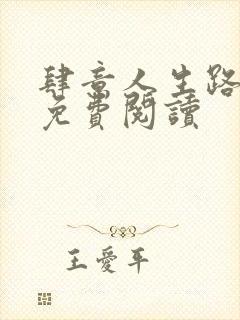 肆意人生路
免費閱讀
王愛平